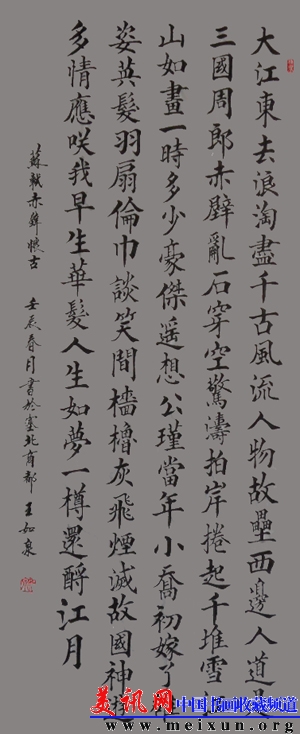 大江東去浪淘盡千古風流人物故壘西邊人道是
三國周郎赤壁亂石穿空驚濤拍岸捲起千堆雪江
山如畫一時多少豪傑遥想公瑾當年小喬初嫁了雄
姿英髮羽扇倫巾談笑間檣櫓灰飛煙滅故國神遊
多情應咲我早生華髮人生如夢一樽還酹江月
蘇軾赤壁懷古 壬辰春月書於塞北商都 王如泉
美讯网 中国书画收藏频道
www.meixun.org